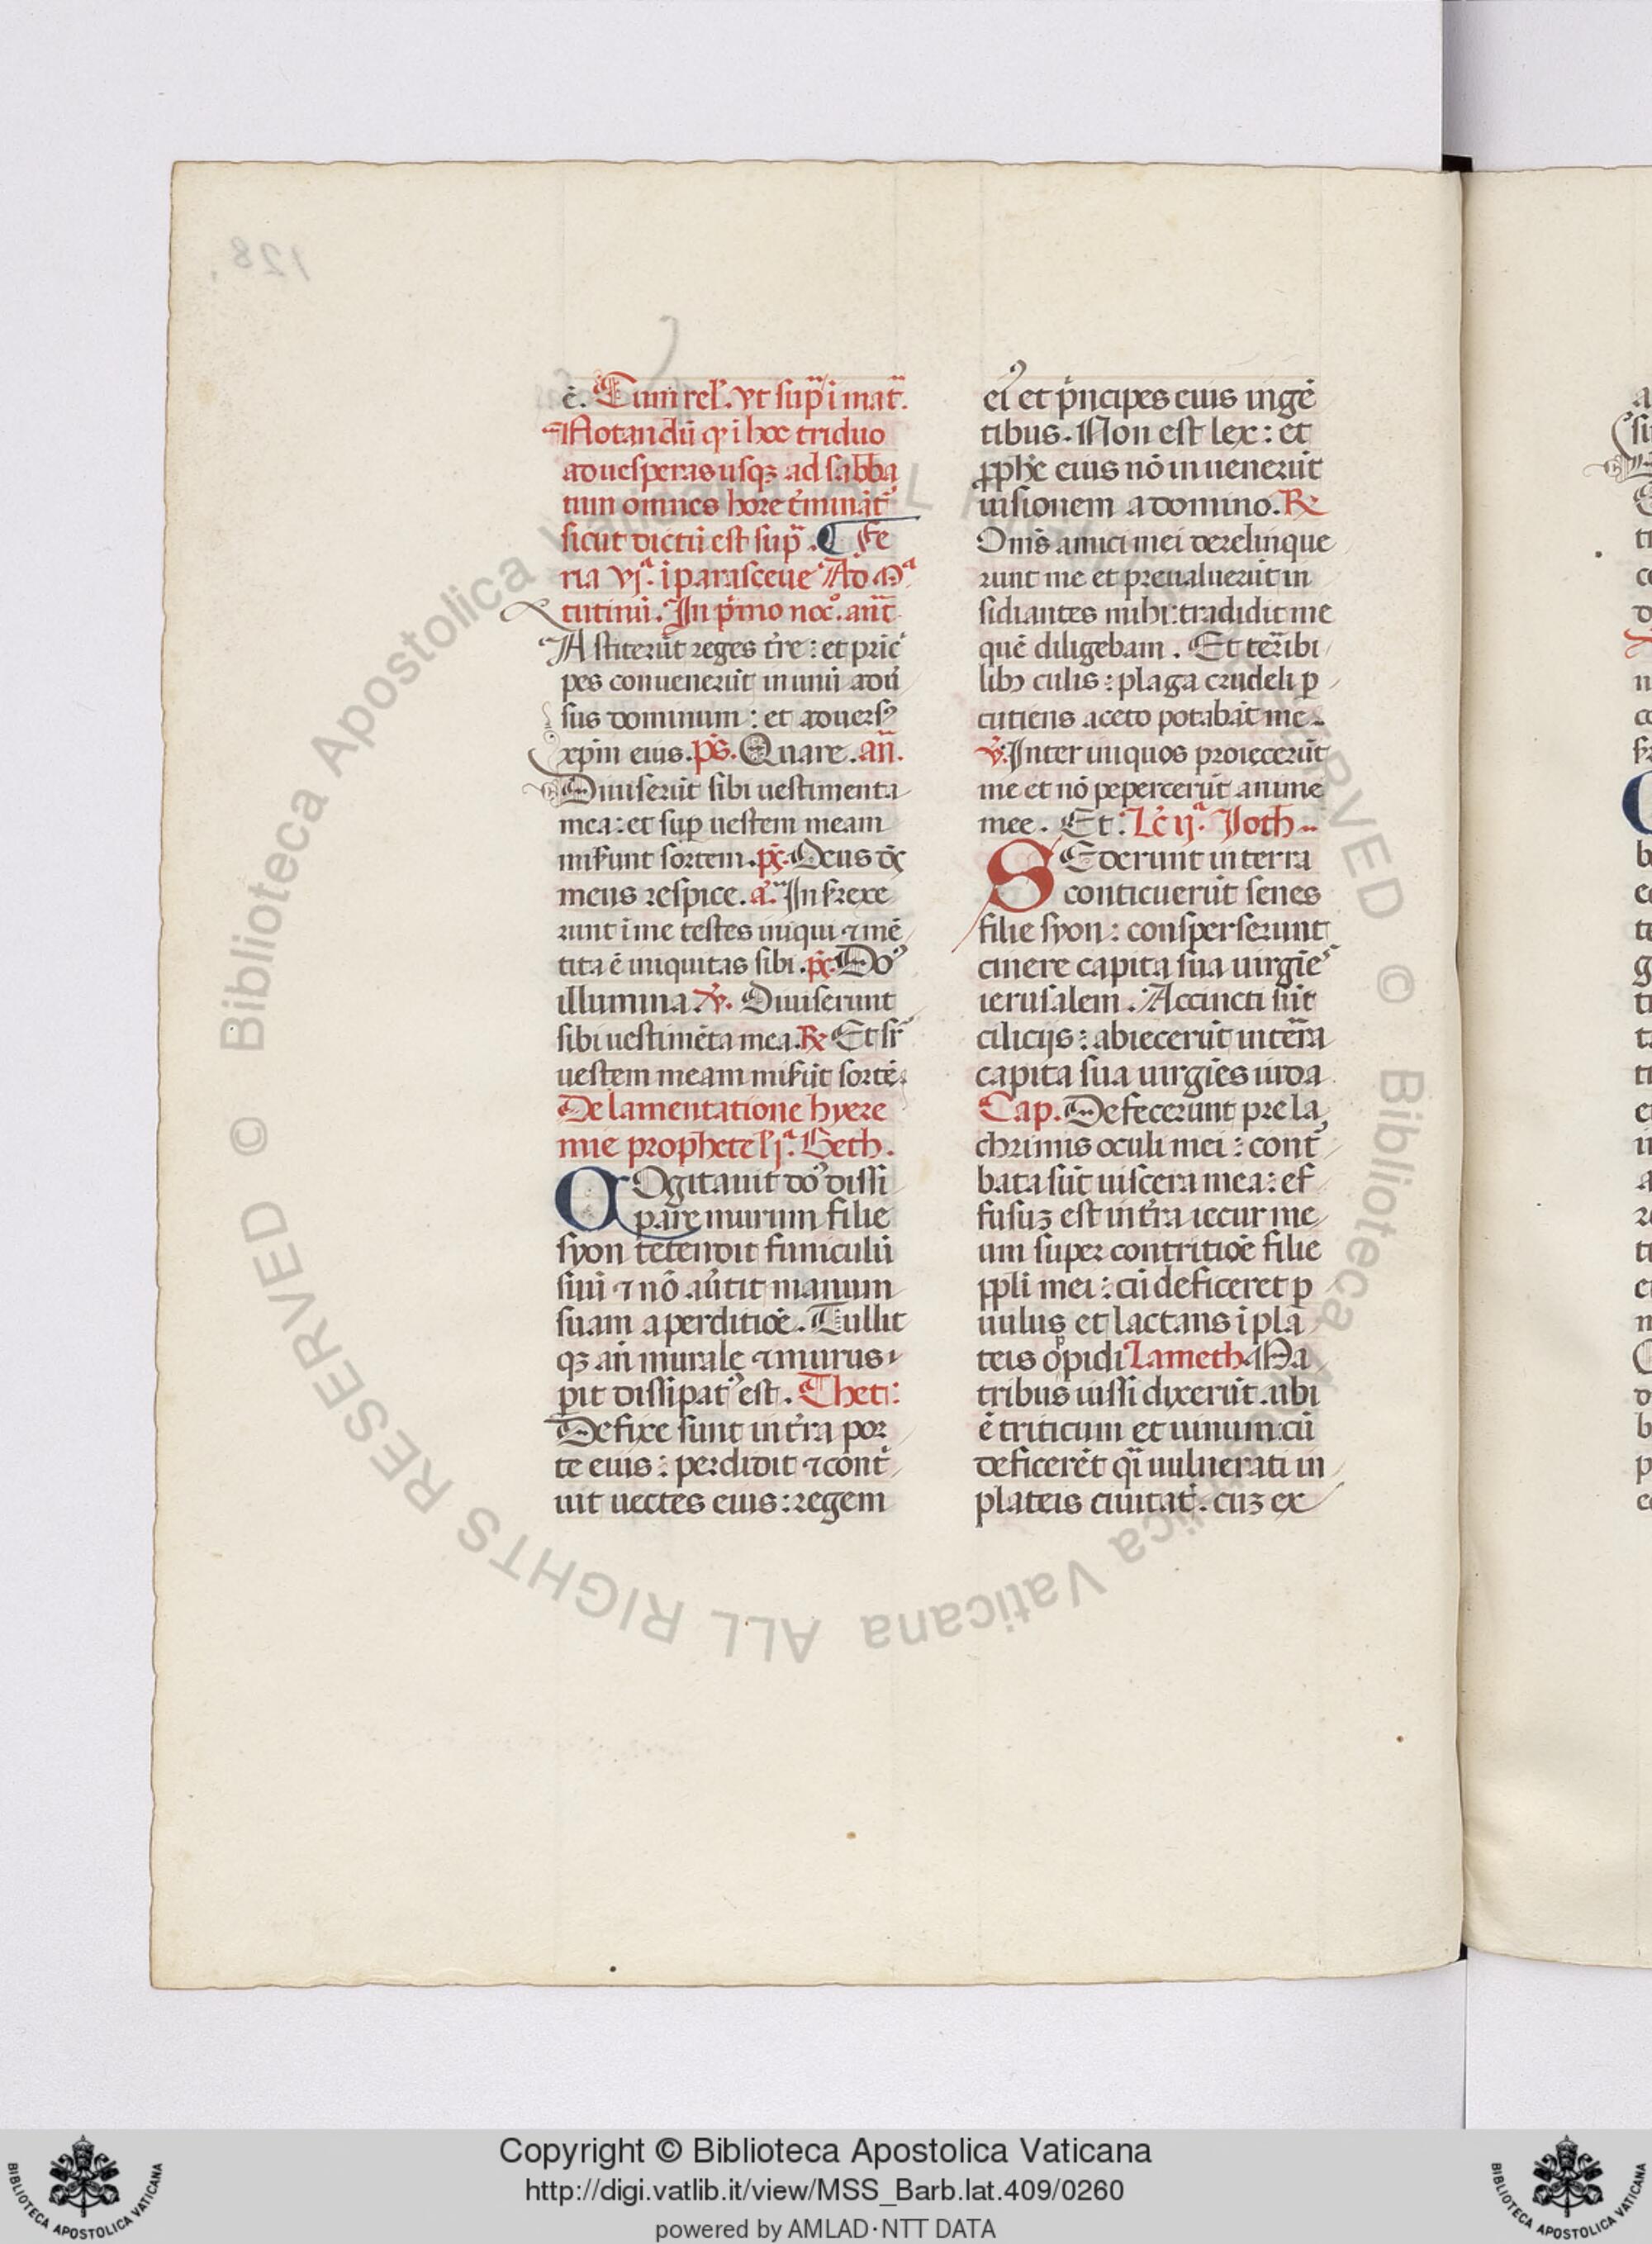 ē. Tum rel'. vt sup̄ i mat̄.
Notandū q i hoc triduo
ad uesperas usqꝫ ad sabba
tum omnes hore t̓minant̄
sicut dictū est sup̄. ¶ Fe
ria vjª. i parasceue Ad Mª
tutinū. In p̓mo noc̊. ant̄
Astiterūt reges t̓re : et prīc
pes conuenerūt in unū adū
sus dominum : et aduersꝰ
xp̄m eius. ps̄. Quare. an̄.
Diuiserūt sibi uestimenta
mea : et sup uestem meam
mis̓unt sortem. ps̄. Deus dś
meus respice. a̓. In surrexe
runt ī me testes iniqui ⁊ mē
tita ē iniquitas sibi. ps̄. Doꝰ
illumina ℣. Diuiserunt
sibi uestimēta mea. ℞ Et sr̄
uestem meam mis̓ūt sortē.
De lamentatione hyere
mie prophete l' jª. Heth.
COgitauit doꝰ dissi
pare murum filie
syon tetendit funiculū
suū ⁊ nō au̓tit manum
suam a perditiōe. Luxit
qꝫ añ murale ⁊ murus
pit dissipatꝰ est. Theth:
Defixe sunt in t̓ra por
te eius : perdidit ⁊ cont̓
uit uectes eius : regem
eiꝰ et p̓ncipes eius in gē
tibus. Non est lex : et
ꝓphe eius nō inuenerūt
uisionem a domino. ℞
Om̄s amici mei derelinque
runt me et preualuerūt in
sidiantes mihi : tradidit me
quē diligebam. Et terribi
libꝫ culis : plaga crudeli ꝑ
cutiens aceto potabāt me.
℣. Inter iniquos proiecerūt
me et nō pepercerūt anime
mee. Et. Lc̄ ijª. Joth.
SEderunt in terra
conticuerūt senes
filie syon : consperserunt
cinere capita sua uirgīeˢ
ierusalem. Accincti sūt
cilicijs : abiecerūt in terra
capita sua uirgīes iuda
Cap. Defecerunt pre la
chrimis oculi mei : cont̓
bata sūt uiscera mea : ef
fusuꝫ est in t̓ra iecur me
um super contritiōe filie
ppl̄i mei : cū deficeret ꝑ
uulus et lactans i pla
teis opidi Lameth. Ma
tribus uissi dixerūt. ubi
ē triticum et uinum : cū
deficerēt q̄ uulnerati in
plateis ciuitat̓. cuꝫ ex
128
Copyright © Biblioteca Apostolica Vaticana
http://digi.vatlib.it/view/MSS_Barb.lat.409/0260
powered by AMLAD·NTT DATA